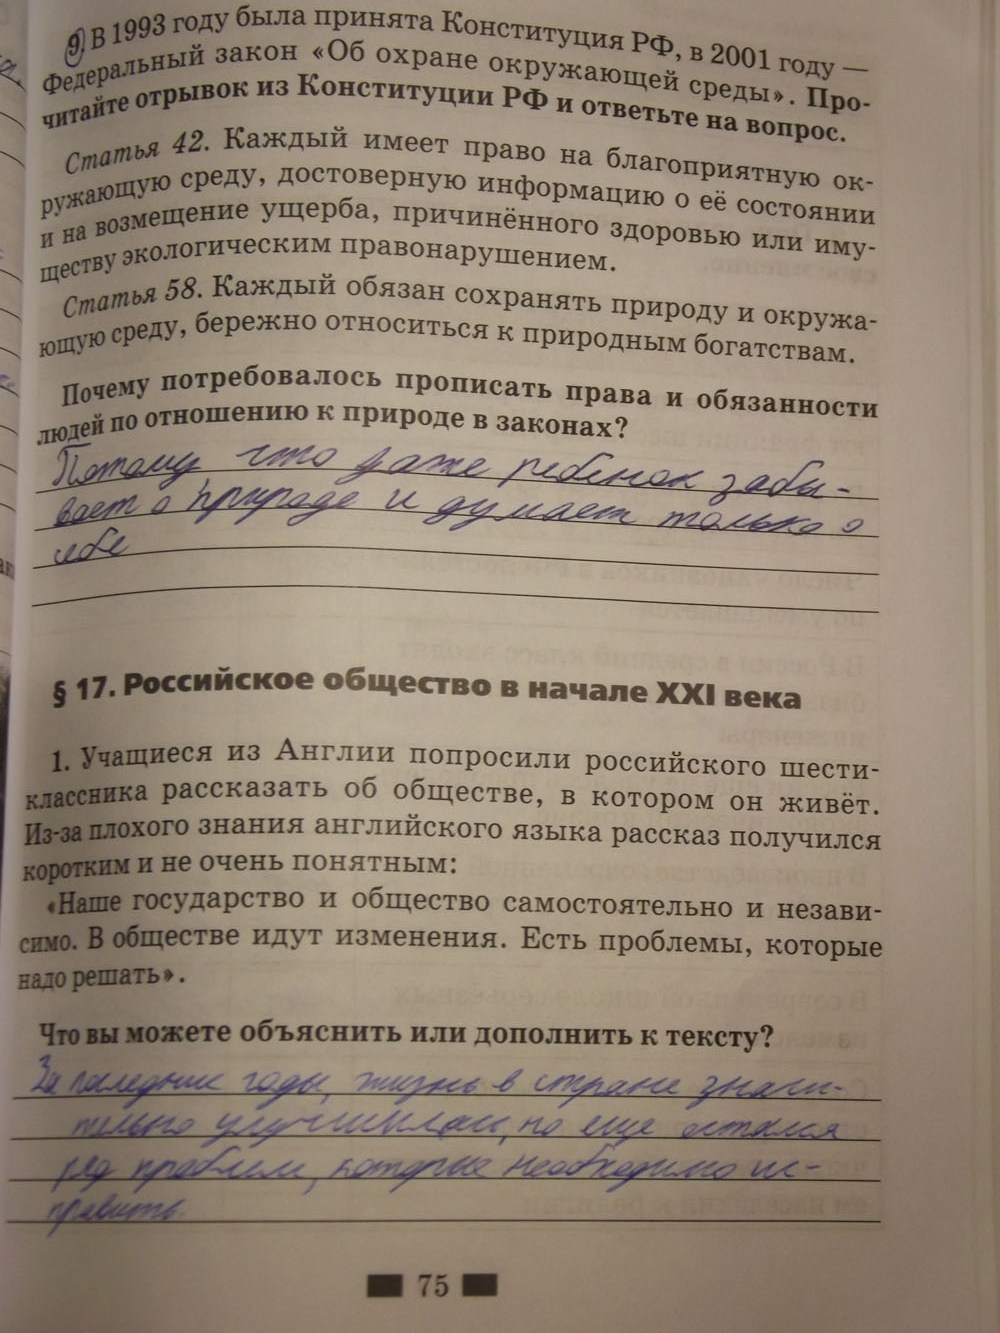 9. В 1993 году была принята Конституция РФ, в 2001 году —
Федеральный закон «Об охране окружающей среды». Про-
читайте отрывок из Конституции РФ и ответьте на вопрос.
Статья 42. Каждый имеет право на благоприятную ок-
ружающую среду, достоверную информацию о её состоянии
и на возмещение ущерба, причинённого здоровью или иму-
ществу экологическим правонарушением.
Статья 58. Каждый обязан сохранять природу и окружа-
ющую среду, бережно относиться к природным богатствам.
Почему потребовалось прописать права и обязанности
людей по отношению к природе в законах?
Потому что даже ребёнок забы-
вает о природе и думает только о
себе
§ 17. Российское общество в начале XXI века
1. Учащиеся из Англии попросили российского шести-
классника рассказать об обществе, в котором он живёт.
Из-за плохого знания английского языка рассказ получился
коротким и не очень понятным:
«Наше государство и общество самостоятельно и незави-
симо. В обществе идут изменения. Есть проблемы, которые
надо решать».
Что вы можете объяснить или дополнить к тексту?
За последние годы, жизнь в стране значи-
тельно улучшилась, но еще остался
ряд проблем, которые необходимо ис-
править.
75